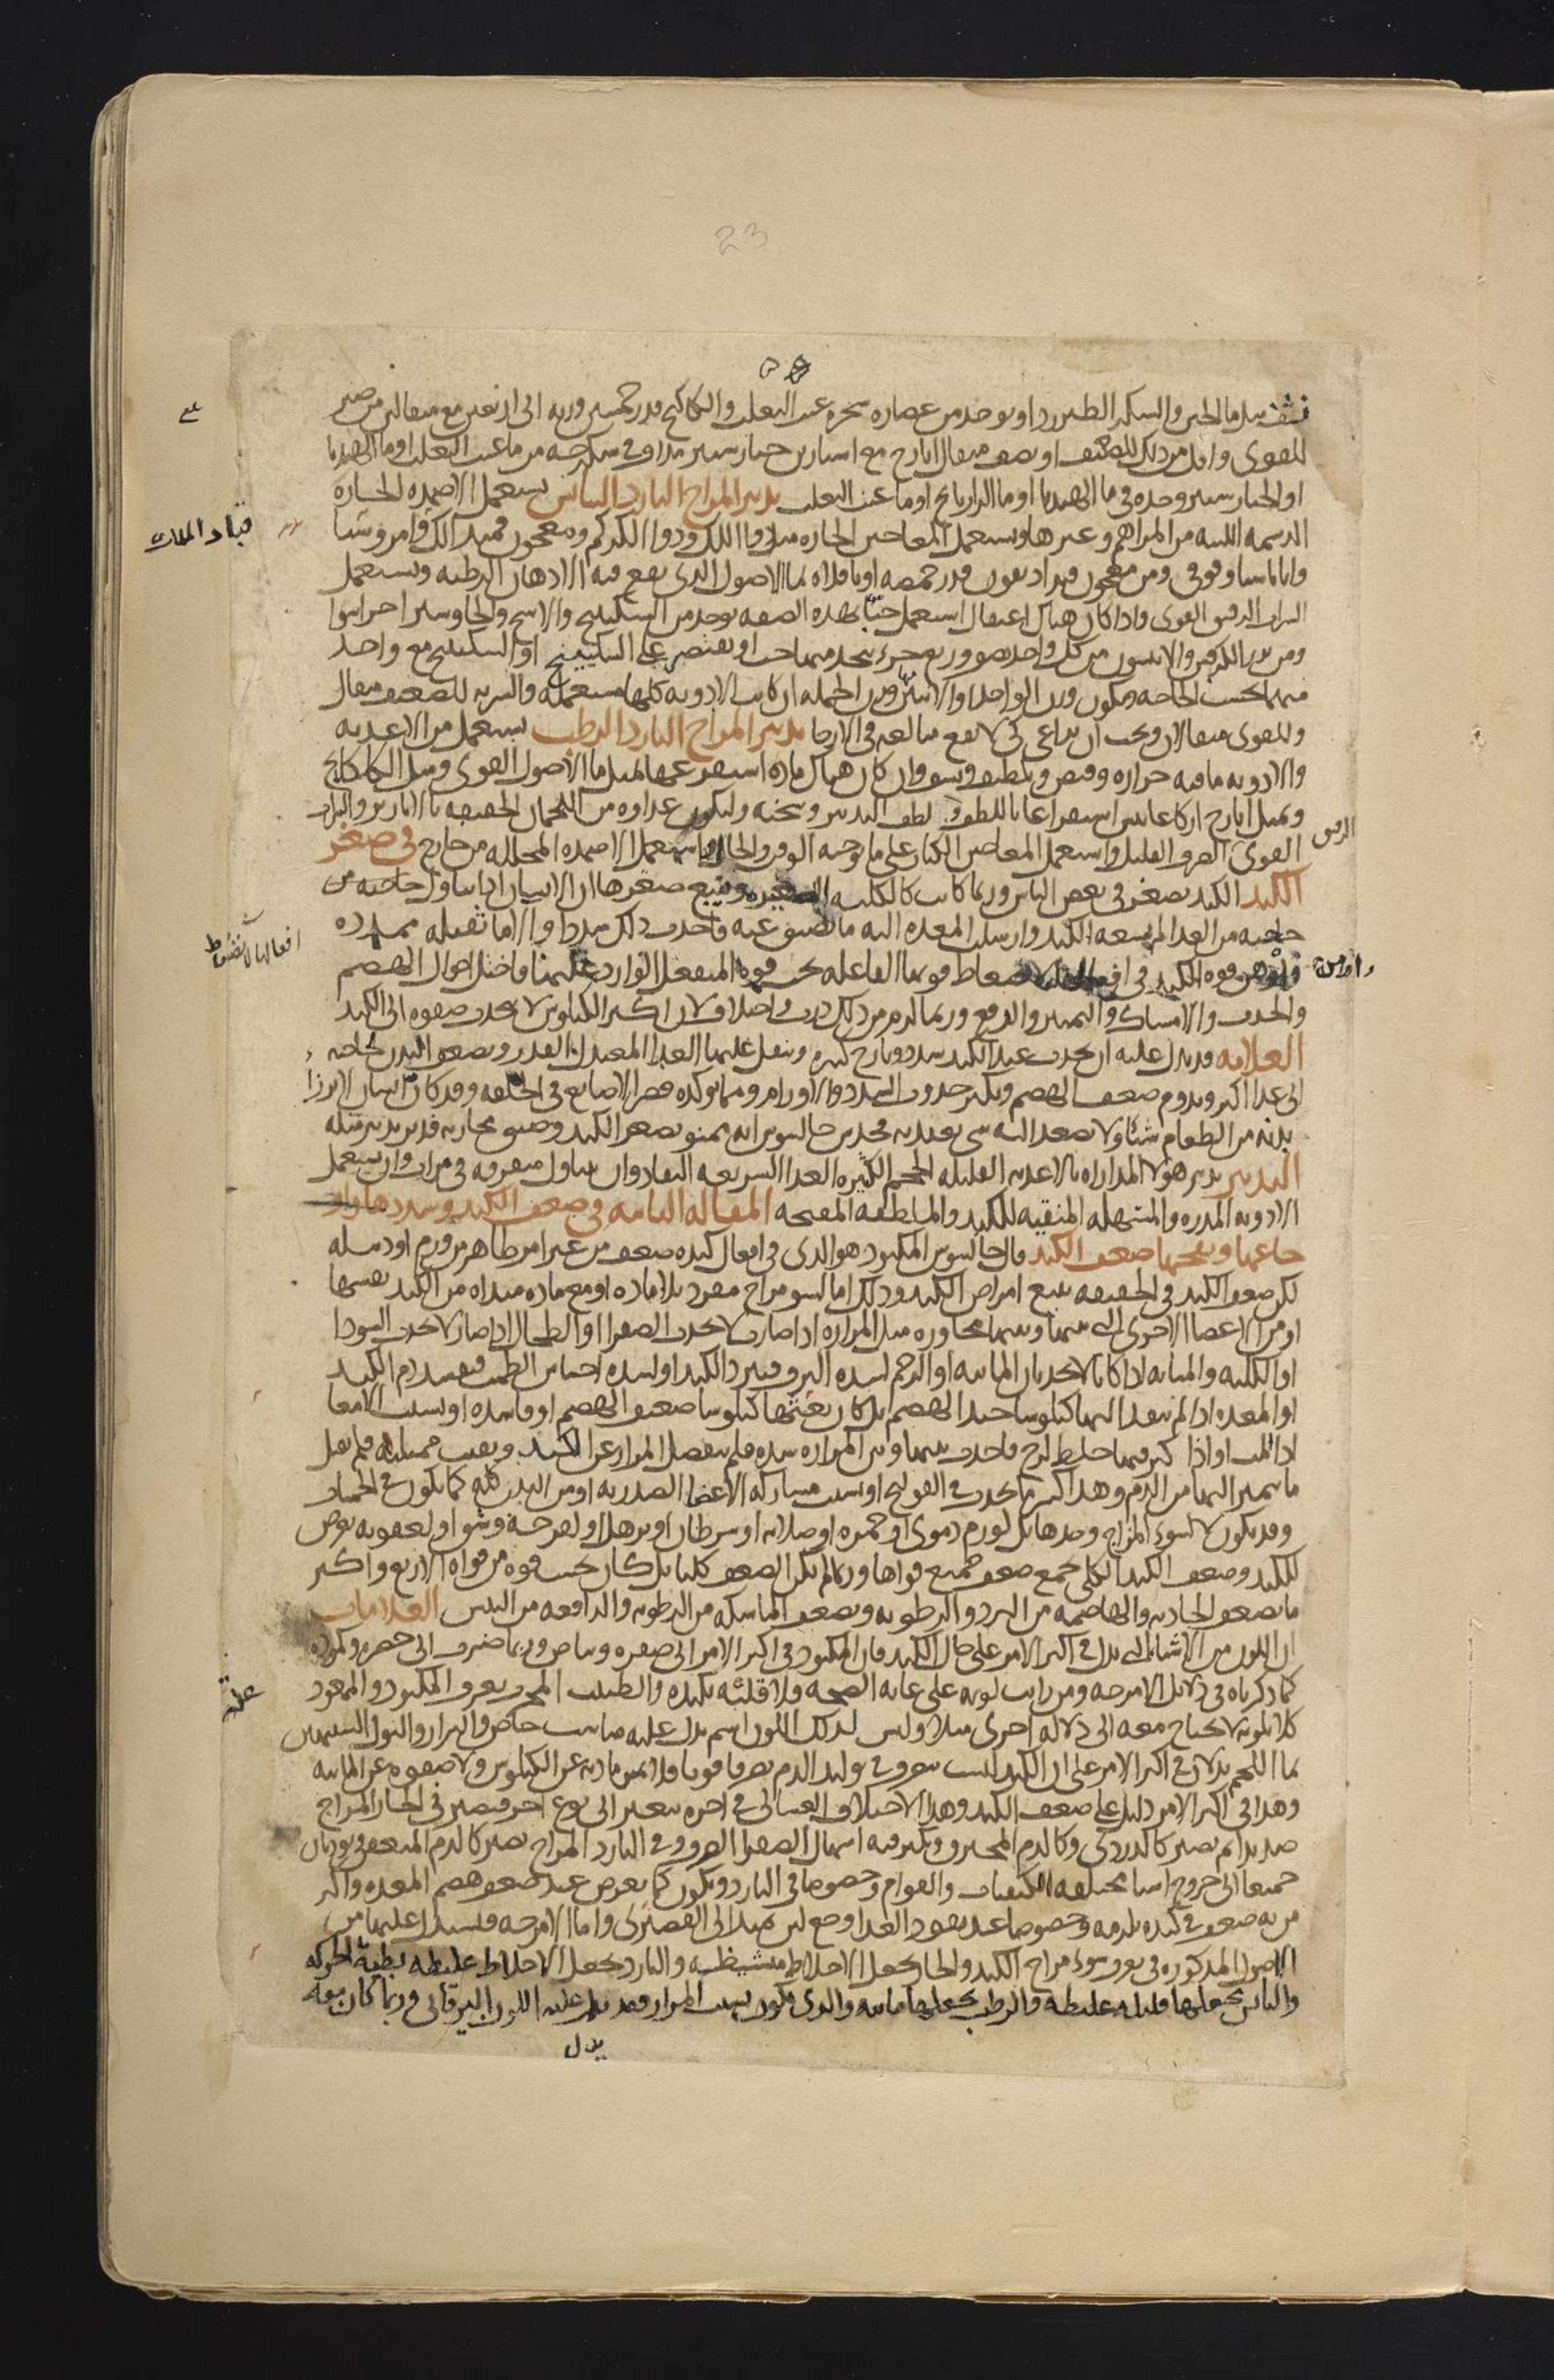 23
ينشف مثل ما الجبن والسكر الطبرزد او يوخذ من عصاره شجره عنب الثعلب والكاكنج قدر خمسين وزنه الى اربعين مع مثقالين من صبر
للقوى واقل من ذلك للضعيف او نصف مثقال ايارج مع استارين خيارشنبر مداف فى سكرجه من ما عنب الثعلب او ما الهندبا
او الخيارشنبر وحده فى ما الهندبا او ما الرازيانج او ما عنب الثعلب تدبير المزاج البارد اليابس يستعمل الاضمده الحاره
الدسمه اللينه من المراهم وغيرها ويستعمل المعاجين الحاره مثل دوا اللك ودوا الكركم ومعجون قباد الملك وامروسيا
واثاناسيا وفوقى ومن معجون قباد يعون قدر حمصه او باقلاه بما الاصول الذى يقع فيه الادهان الرطبه ويستعمل
الشراب الرقيق القوى واذا كان هناك اعتقال استعمل حبا بهذه الصفه يوخذ من السكبينج والاشج والجاوشير اجزا سوا
ومن بزر الكرفس والانيسون من كل واحد نصف وربع جزء يتخذ منها حب او يقتصر على السكبينج او السكبينج مع واحد
منهما بحسب الحاجه ويكون وزن الواحد او الاثنين وزن الجمله ان كانت الادويه كلها مستعمله والشربه للضعيف مثقال
وللقوى مثقالان ويجب ان يراعى كى لا يقع مبالغه فى الارخا تدبير المزاج البارد الرطب يستعمل من الاغذيه
والادويه ما فيه حراره وقبض وتلطيف ونشف وان كان هناك ماده استفرغ عنها بمثل ما الاصول القوى ومثل الكاكنج
وبمثل ايارج اركاغانيس استفراغا باللطف ولطف التدبير وسخنه وليكن غذاوه من اللحمان الخفيفه بالابازير والشراب
القوى الصرف القليل واستعمل المعاجين الكبار على ما توجبه الوقت والحال واستعمل الاضمده المحلله من خارج فى صغر
الكبد الكبد تصغر فى بعض الناس وربما كانت كالكليه الصغيره ويتبع صغرها ان الانسان اذا تناول حاجته من
حاجته من الغذا لم يسعه الكبد وارسلت المعده اليه ما تضيق عنه فاحدث ذلك سددا والاما ثقيله ممدده
فاوهن قوه الكبد فى افعالها لانضغاط قوتها الفاعله تحت قوه المنفعل الوارد عليها فاختل احوال الهضم
والجذب والامساك والتمييز والدفع وربما لزم من ذلك ذرب واختلاف لان اكثر الكيلوس لا يجذب صفوه الى الكبد
العلامه قد يدل عليه ان يحدث عند الكبد سدد ورياح كثيره وينفل عليها الغذا المعتدل القدر ويضعف البدن لحاجته
الى غذا اكثر ويدوم ضعف الهضم ويكثر حدوث السدد والاورام ومما يوكده قصر الاصابع فى الخلقه وقد كان انسان لا يرزا
بدنه من الطعام شيئا ولا يصعد اليه شى يعتد به فحدس جالينوس انه ممنو بصغر الكبد وضيق مجاريه فدبره تدبير مثله
التدبير تدبير هولا المداراه بالاغذيه القليله الحجم الكثيره الغذا السريعه النفاذ وان يتناول متفرقه فى مرات وان يستعمل
الادويه المدره والمسهله المنقيه للكبد والملطفه المفتحه المقاله الثانيه فى ضعف الكبد وسددها واو
جاعها ورياحها ضعف الكبد قال جالينوس المكبود هو الذى فى افعال كبده ضعف من غير امر ظاهر من ورم او دبيله
لكن ضعف الكبد فى الحقيقه يتبع امراض الكبد وذلك اما لسو مزاج مفرد بلا ماده او مع ماده مبداه من الكبد نفسها
او من الاعضا الاخرى التى بينها وبينها مجاوره مثل المراره اذا صارت لا تجذب الصفرا او الطحال اذا صار لا يجذب السودا
او الكليه والمثانه اذا كانا لا يجذبان المائيه او الرحم لشده النزف فيبرد الكبد او لشده احتباس الطمث فيفسد دم الكبد
او المعده اذا لم ينفذ اليها كيلوسا جيد الهضم بل كان بعثها كيلوسا ضعيف الهضم او فاسده او بسبب الامعا
اذا المت او اذا كثر فيها خلط لزج فاحدث بينها وبين المراره سده فلم ينفصل المرار عن الكبد وبقيت ممتليه فلم تقبل
ما يتميز اليها من الدم وهذا كثيرا ما يحدث فى القولنج او بسبب مشاركه الاعضا الصدريه او من البدن كله كما يكون فى الحميات
وقد يكون لا لسوء المزاج وحدها بل لورم دموى او حمره او صلابه او سرطان او ترهل او لقرحه وشق او لعفونه تعرض
للكبد وضعف الكبد الكلى يجمع ضعف جميع قواها وربما لم يكن الضعف كليا بل كان بحسب قوه من قواه الاربع واكثر
ما تضعف الجاذبه والهاضمه من البرد والرطوبه وتضعف الماسكه من الرطوبه والدافعه من اليبس العلامات
ان اللون من الاشيا التى تدل فى اكثر الامر على حال الكبد فان المكبود فى اكثر الامر الى صفره وبياض وربما ضرب الى خضره وكموده
كما ذكرناه فى دلائل الامزجه ومن رايت لونه على غايه الصحه فلا قلبه بكبده والطبيب المجرب يعرف المكبود والممعود
كلا بلونه لا يحتاج معه الى دلاله اخرى مثلا وليس لذلك اللون اسم يدل عليه مناسب خاص والبراز والبول الشبيهين
بما اللحم يدلان فى اكثر الامر على ان الكبد ليست تتصرف فى توليد الدم تصرفا قويا فلا تميز مادته عن الكيلوس ولا صفوه عن المائيه
وهذا فى اكثر الامر دليل على ضعف الكبد وهذا الاختلاف الغسالى فى اخره يتغير الى نوع اخر فيصير فى الحار المزاج
صديدا ثم يصير كالدردى وكالدم المحترق ويكثر فيه اسهال الصفرا الصرف وفى البارد المزاج يصير كالدم المتعفن ويوديان
جميعا الى خروج اشيا مختلفه الكيفيات والقوام وخصوصا فى البارد ويكون كما يعرض عند ضعف هضم المعده واكثر
من به ضعف فى كبده يلزمه وخصوصا عند نفوذ الغذا وجع لين يمتد الى القصيرى واما الامزجه فيستدل عليها من
الاصول المذكوره فى تعرف سوء مزاج الكبد والحار يجعل الاخلاط متشيطه والبارد يجعل الاخلاط غليظه بطيه الحركه
واليابس يجعلها قليله غليظه والرطب يجعلها مائيه والذى يكون بسبب المرار فقد يدل عليه اللون اليرقانى وربما كان معه
يدل
قباد الملك
الرقيق
افعالها لانضغاط
واوهن
عليه